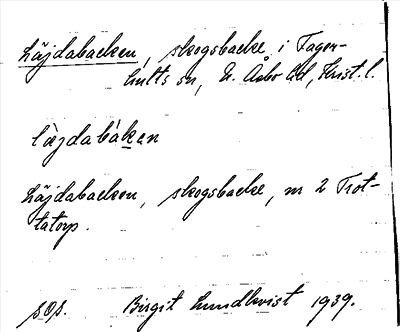 Läjdabacken, skogsbacke i Fager-
hults sn, N. Åsbo hd, Krist. l.
läjdabàken
Läjdabacken, skogsbacke, nr 2 Trot-
tatorp.
sOp. Birgit Lundkvist 1939.